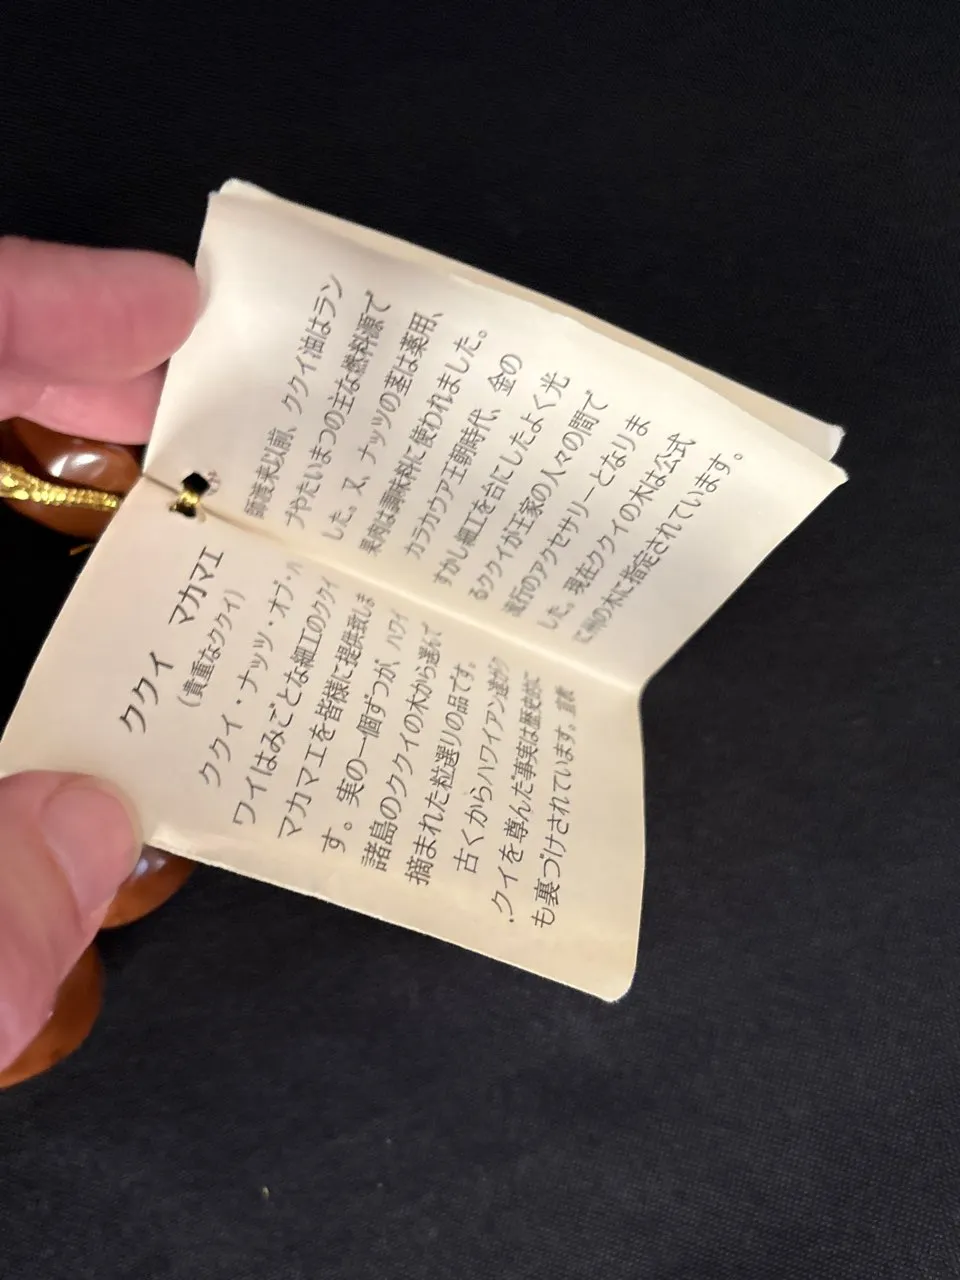 ククイ マカマエ
(貴重なククイ)
ククイ・ナッツ・オブ・ハ
ワイはみごとな細工のククイ
マカマエを皆様に提供致しま
す。実の一個ずつが、ハワイ
諸島のククイの木から選んで
摘まれた粒選りの品です。
古くからハワイアン達がク
クイを尊んだ事実は歴史的に
も裏づけされています。宣教
師渡来以前、ククイ油はラン
プやたいまつの主な燃料源で
した。又、ナッツの茎は薬用、
果肉は調味料に使われました。
カラカウア王朝時代、金の
すかし細工を台にしたよく光
るククイが王家の人々の間で
流行のアクセサリーとなりま
した。現在ククイの木は公式
に州の木に指定されています。